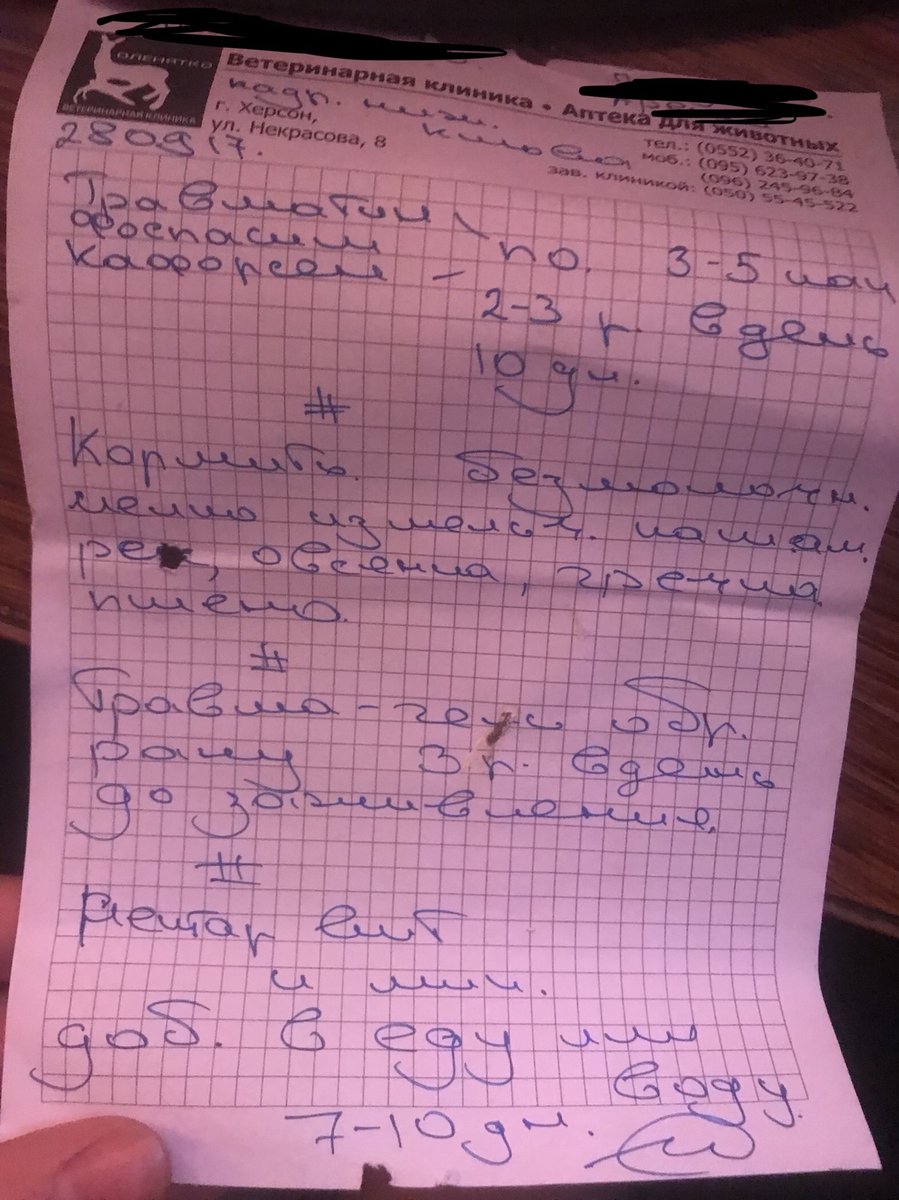 ОЛЕНЯТКО
ВЕТЕРИНАРНАЯ КЛИНИКА
Ветеринарная клиника • Аптека для животных
г. Херсон,
ул. Некрасова, 8
тел.: (0552) 36-40-71
моб.: (095) 623-97-38
(096) 245-96-84
зав. клиникой: (050) 55-45-522
надр. ниж.
клюва
280917.
Травматин
фоспасим
кафорсен – по. 3-5 кап
2-3 р. в день
10 дн.
#
Кормить безмолочн.
мелко измельч. кашам.
овсянка, гречка
пшено.
#
Травма-гель обр.
рану 3 р. в день
до заживления.
#
Нектар вит
и мин.
доб. в еду или
воду.
7-10 дн.